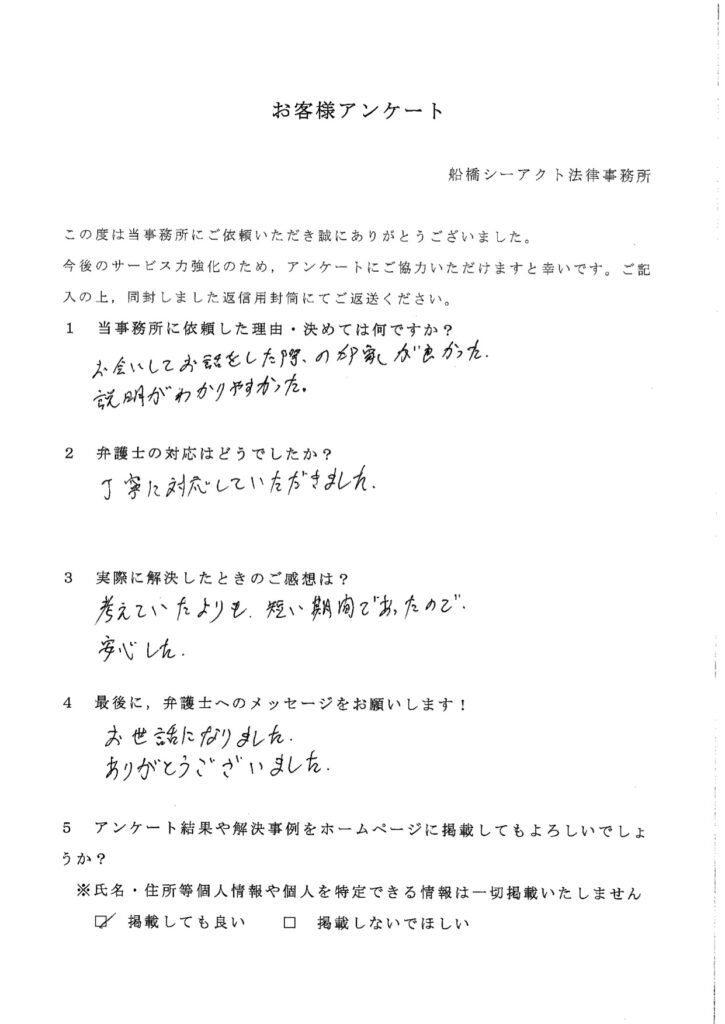 お客様アンケート
船橋シーアクト法律事務所
この度は当事務所にご依頼いただき誠にありがとうございました。
今後のサービス力強化のため，アンケートにご協力いただけますと幸いです。ご記
入の上，同封しました返信用封筒にてご返送ください。
1　当事務所に依頼した理由・決めては何ですか？
お会いしてお話をした際、の印象が良かった.
説明がわかりやすかった。
2　弁護士の対応はどうでしたか？
丁寧に対応していただきました.
3　実際に解決したときのご感想は？
考えていたよりも、短い期間であったので.
安心した.
4　最後に，弁護士へのメッセージをお願いします！
お世話になりました.
ありがとうございました.
5　アンケート結果や解決事例をホームページに掲載してもよろしいでしょ
うか？
※氏名・住所等個人情報や個人を特定できる情報は一切掲載いたしません
☑　掲載しても良い　　□　掲載しないでほしい